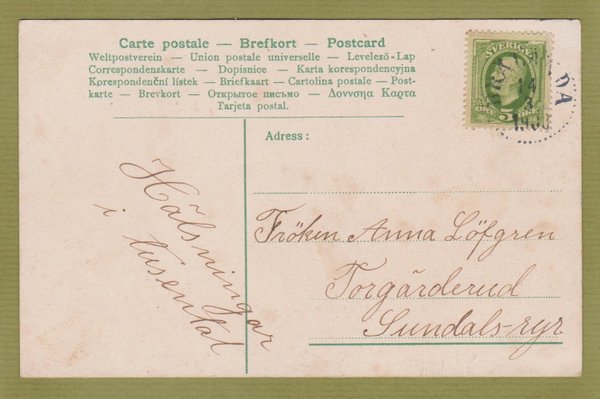 Carte postale — Brefkort — Postcard
Weltpostverein — Union postale universelle — Levelezö-Lap
Correspondenzkarte — Dopisnice — Karta korespondencyjna
Korespondenční lístek — Briefkaart — Cartolina postale — Post-
karte — Brevkort — Открытое письмо — Δοννσηα Καρτα
Tarjeta postal.
SVERIGE
5
14
Adress:
Hälsningar
i tusental
Fröken Anna Löfgren
Torgärderud
Sundals-ryr